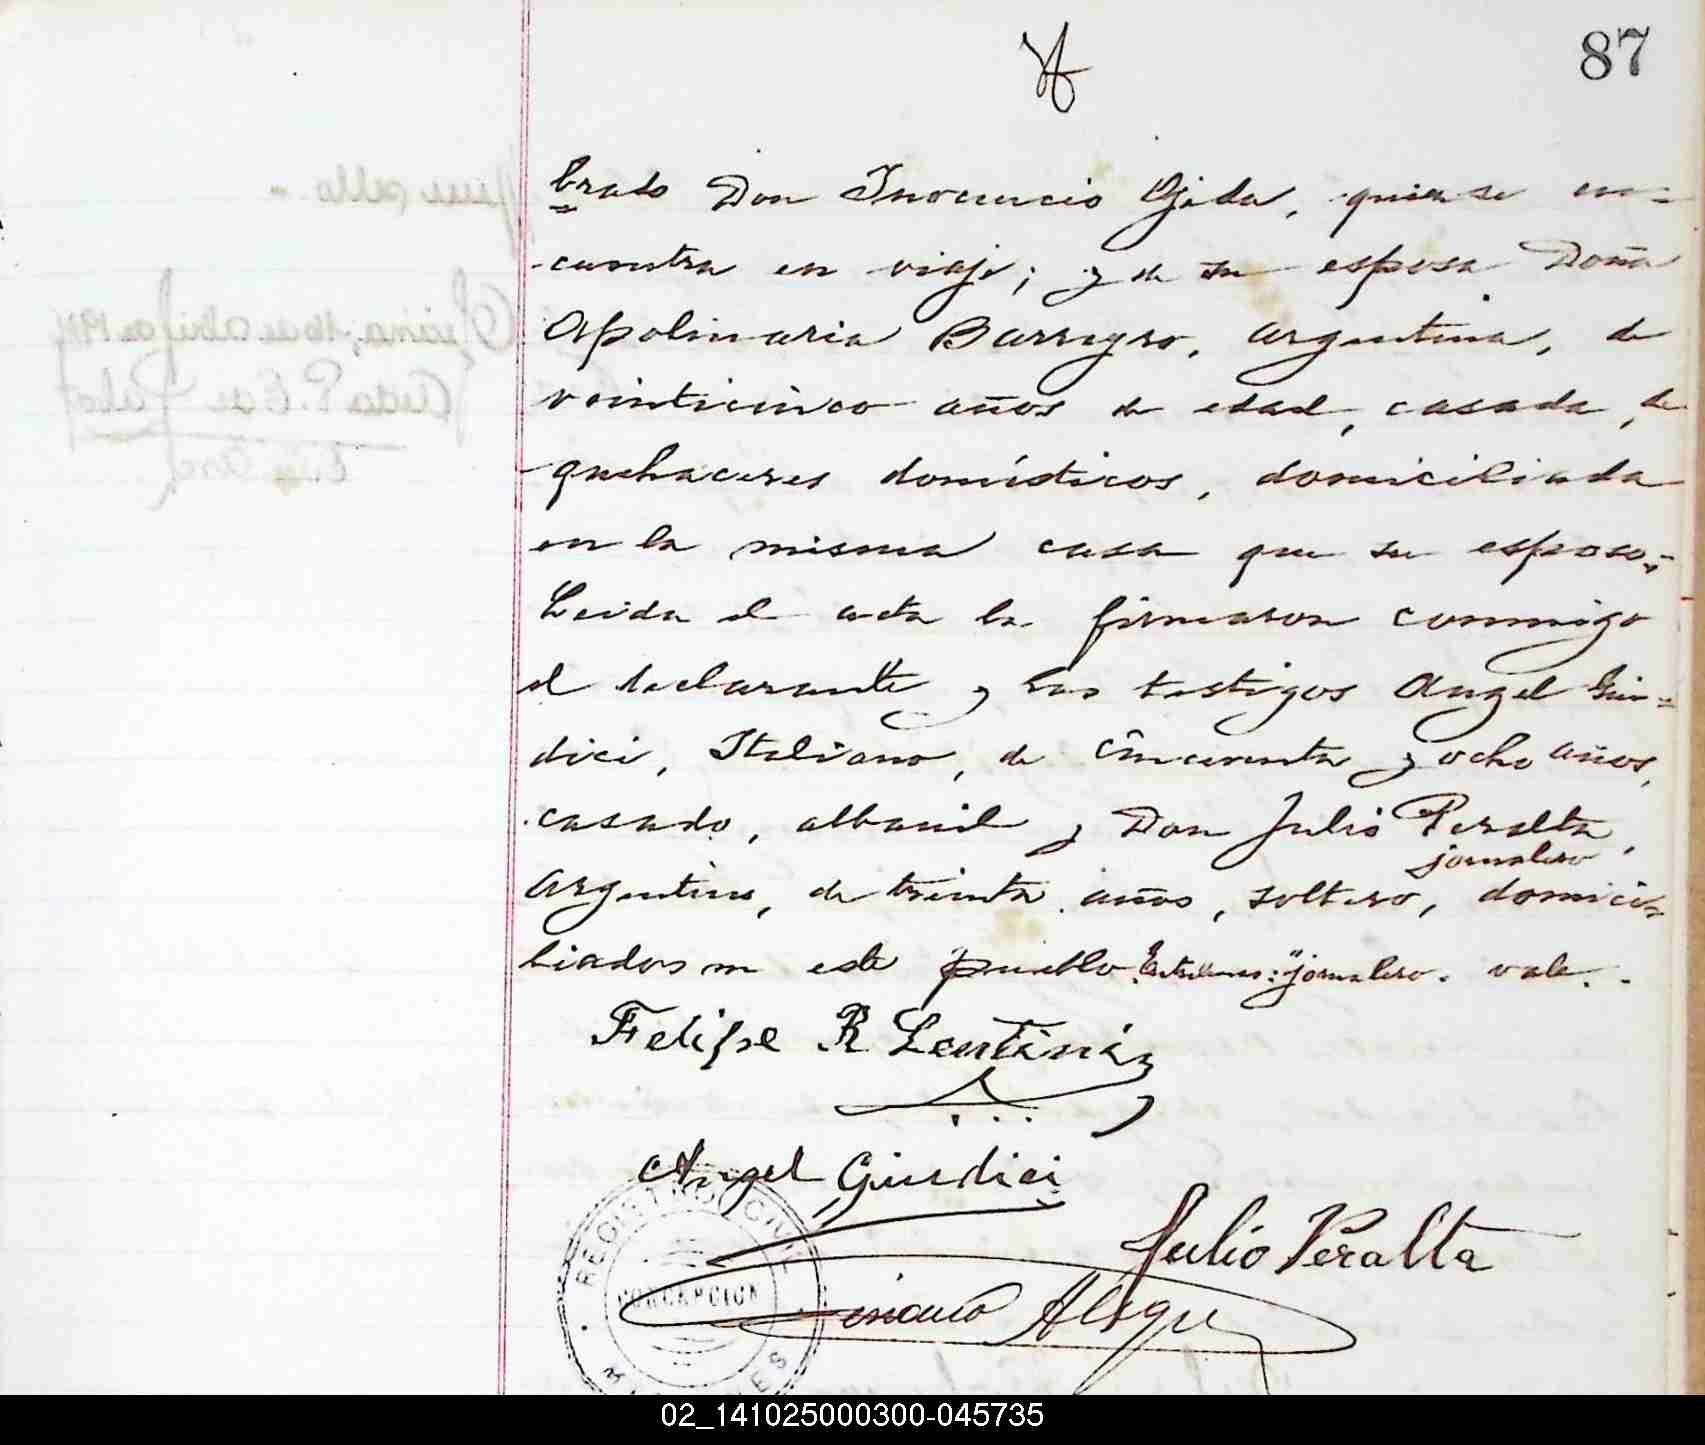 87
brado Don Inocencio Ojeda, quien se en=
cuentra en viaje; y de su esposa Doña
Apolinaria Barreyro, argentina, de
veinticinco años de edad, casada, de
quehaceres domésticos, domiciliada
en la misma casa que su esposo.-
Leida el acta la firmaron conmigo
el declarante y los testigos Angel Giu=
dici, Italiano, de cincuenta y ocho años,
casado, albanil y Don Julio Peralta,
jornalero
argentino, de treinta años, soltero, domici=
liados en este pueblo. Entrelineas: "jornalero. vale.-
Felipe R Lentini
Angel Giudici
Julio Peralta
Alegre
REGISTRO CIVIL
CONCEPCION
02_141025000300-045735